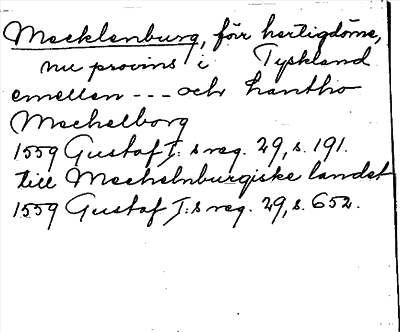 Mecklenburg, förr hertigdöme,
nu provins i Tyskland
emellen --- och hantho
Mechelborg
1559 Gustaf I:s reg. 29, s. 191.
till Mechelnburgiske landet
1559 Gustaf I:s reg. 29, s. 652.